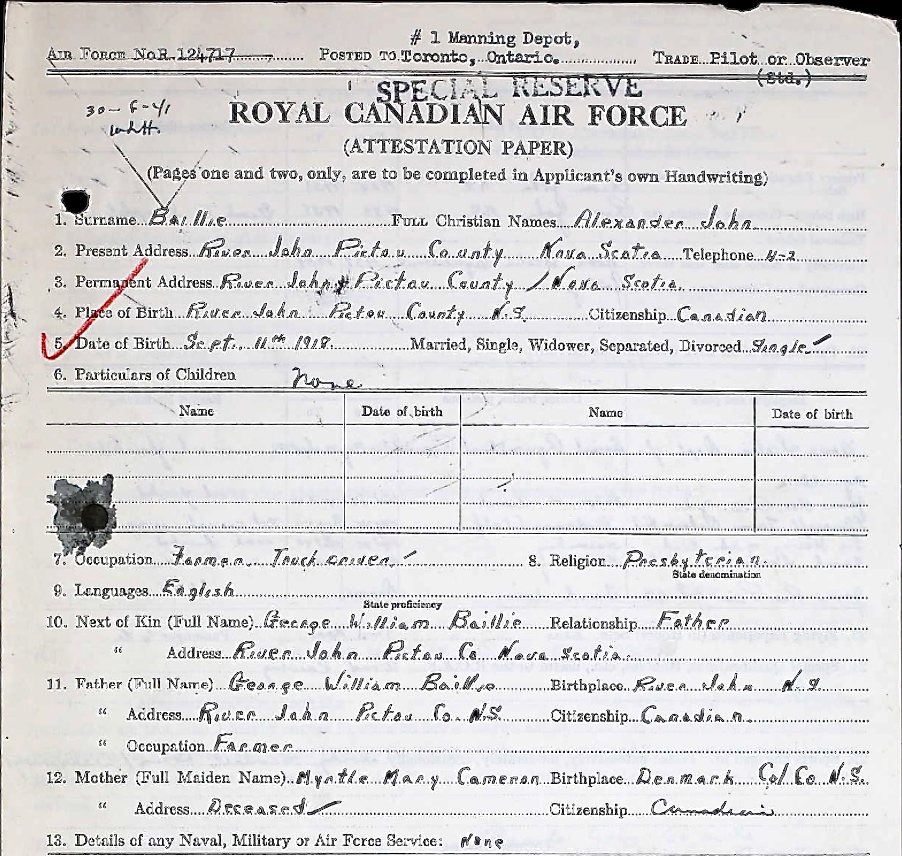 # 1 Manning Depot,
AIR FORCE No R.124717 POSTED TO Toronto, Ontario. TRADE Pilot or Observer
(Std.)
SPECIAL RESERVE
30-6-41
ROYAL CANADIAN AIR FORCE
(ATTESTATION PAPER)
(Pages one and two, only, are to be completed in Applicant's own Handwriting)
1. Surname Baillie FULL Christian Names Alexander John
2. Present Address River John Pictou County Nova Scotia Telephone 4-2
3. Permanent Address River John Pictou County / Nova Scotia.
4. Place of Birth River John Pictou County N.S. Citizenship Canadian
5. Date of Birth Sept. 11th 1918 Married, Single, Widower, Separated, Divorced Single
6. Particulars of Children None
Name Date of birth Name Date of birth
7. Occupation Farmer Truck driver 8. Religion Presbyterian.
State denomination
9. Languages English
State proficiency
10. Next of Kin (Full Name) George William Baillie Relationship Father
" Address River John Pictou Co Nova Scotia.
11. Father (Full Name) George William Baillie Birthplace River John N.S
" Address River John Pictou Co. N.S. Citizenship Canadian.
" Occupation Farmer
12. Mother (Full Maiden Name) Myrtle Mary Cameron Birthplace Denmark Col Co N.S.
" Address Deceased Citizenship Canadian
13. Details of any Naval, Military or Air Force Service: None